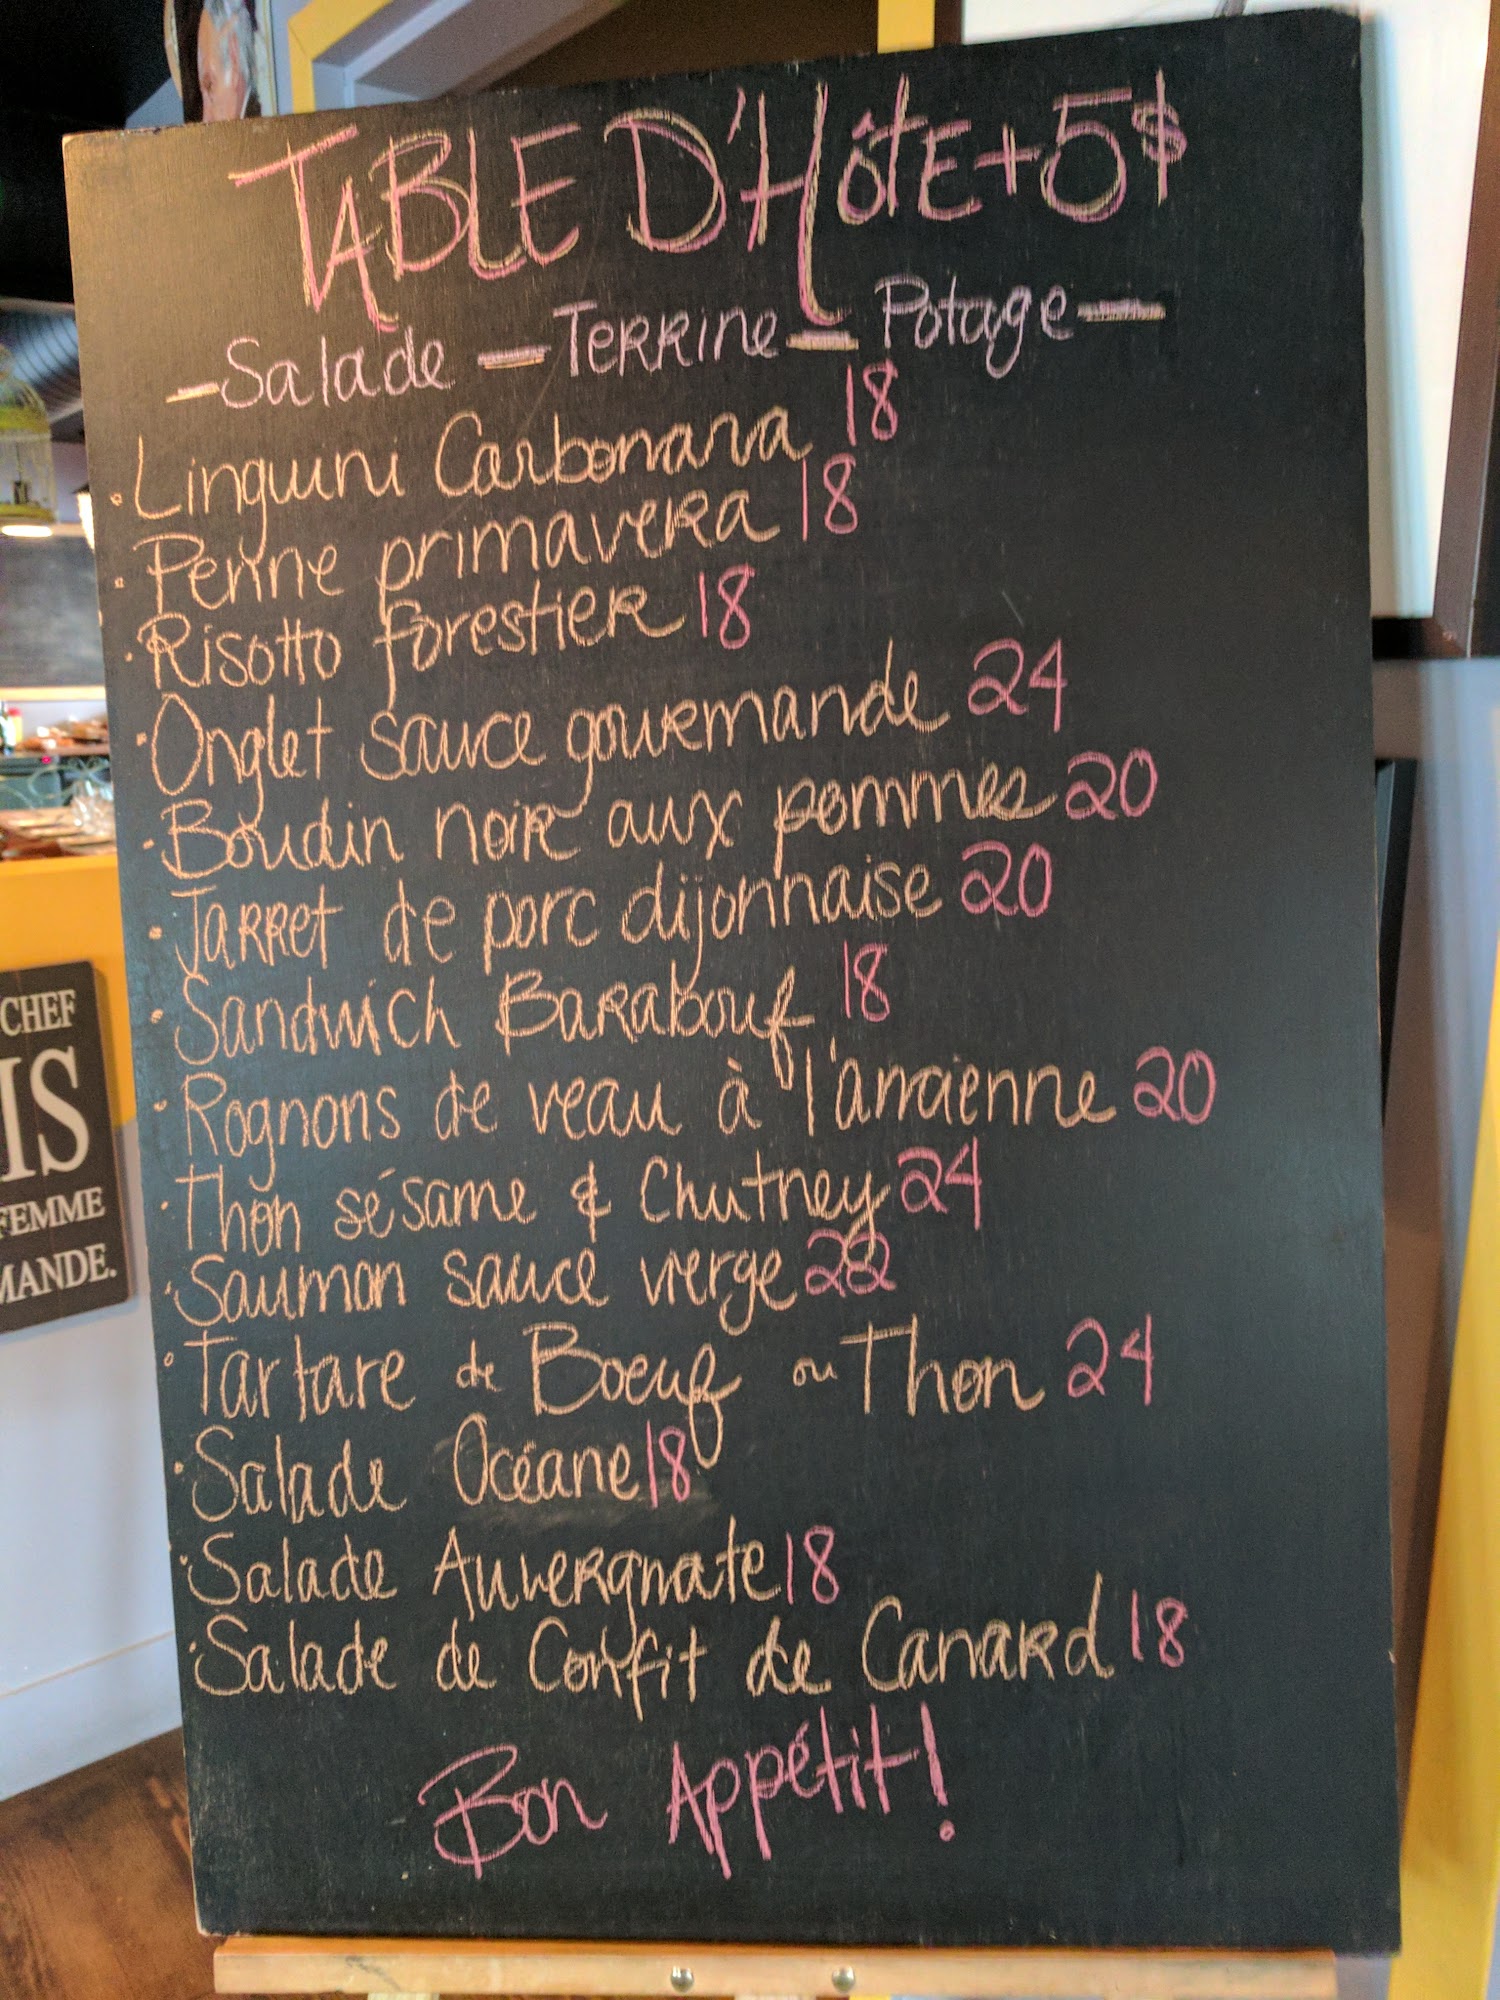 TABLE D'HÔTE + 5$
- Salade - TERRINE - Potage -
· Linguini Carbonara 18
· Penne primavera 18
· Risotto forestier 18
· Onglet sauce gourmande 24
· Boudin noir aux pommes 20
· Jarret de porc dijonnaise 20
· Sandwich Barabouf 18
· Rognons de veau à l'ancienne 20
· Thon sésame & Chutney 24
· Saumon sauce vierge 22
· Tartare de Boeuf ou Thon 24
· Salade Océane 18
· Salade Auvergnate 18
· Salade de Confit de Canard 18
Bon Appétit!
CHEF
IS
FEMME
MANDE.